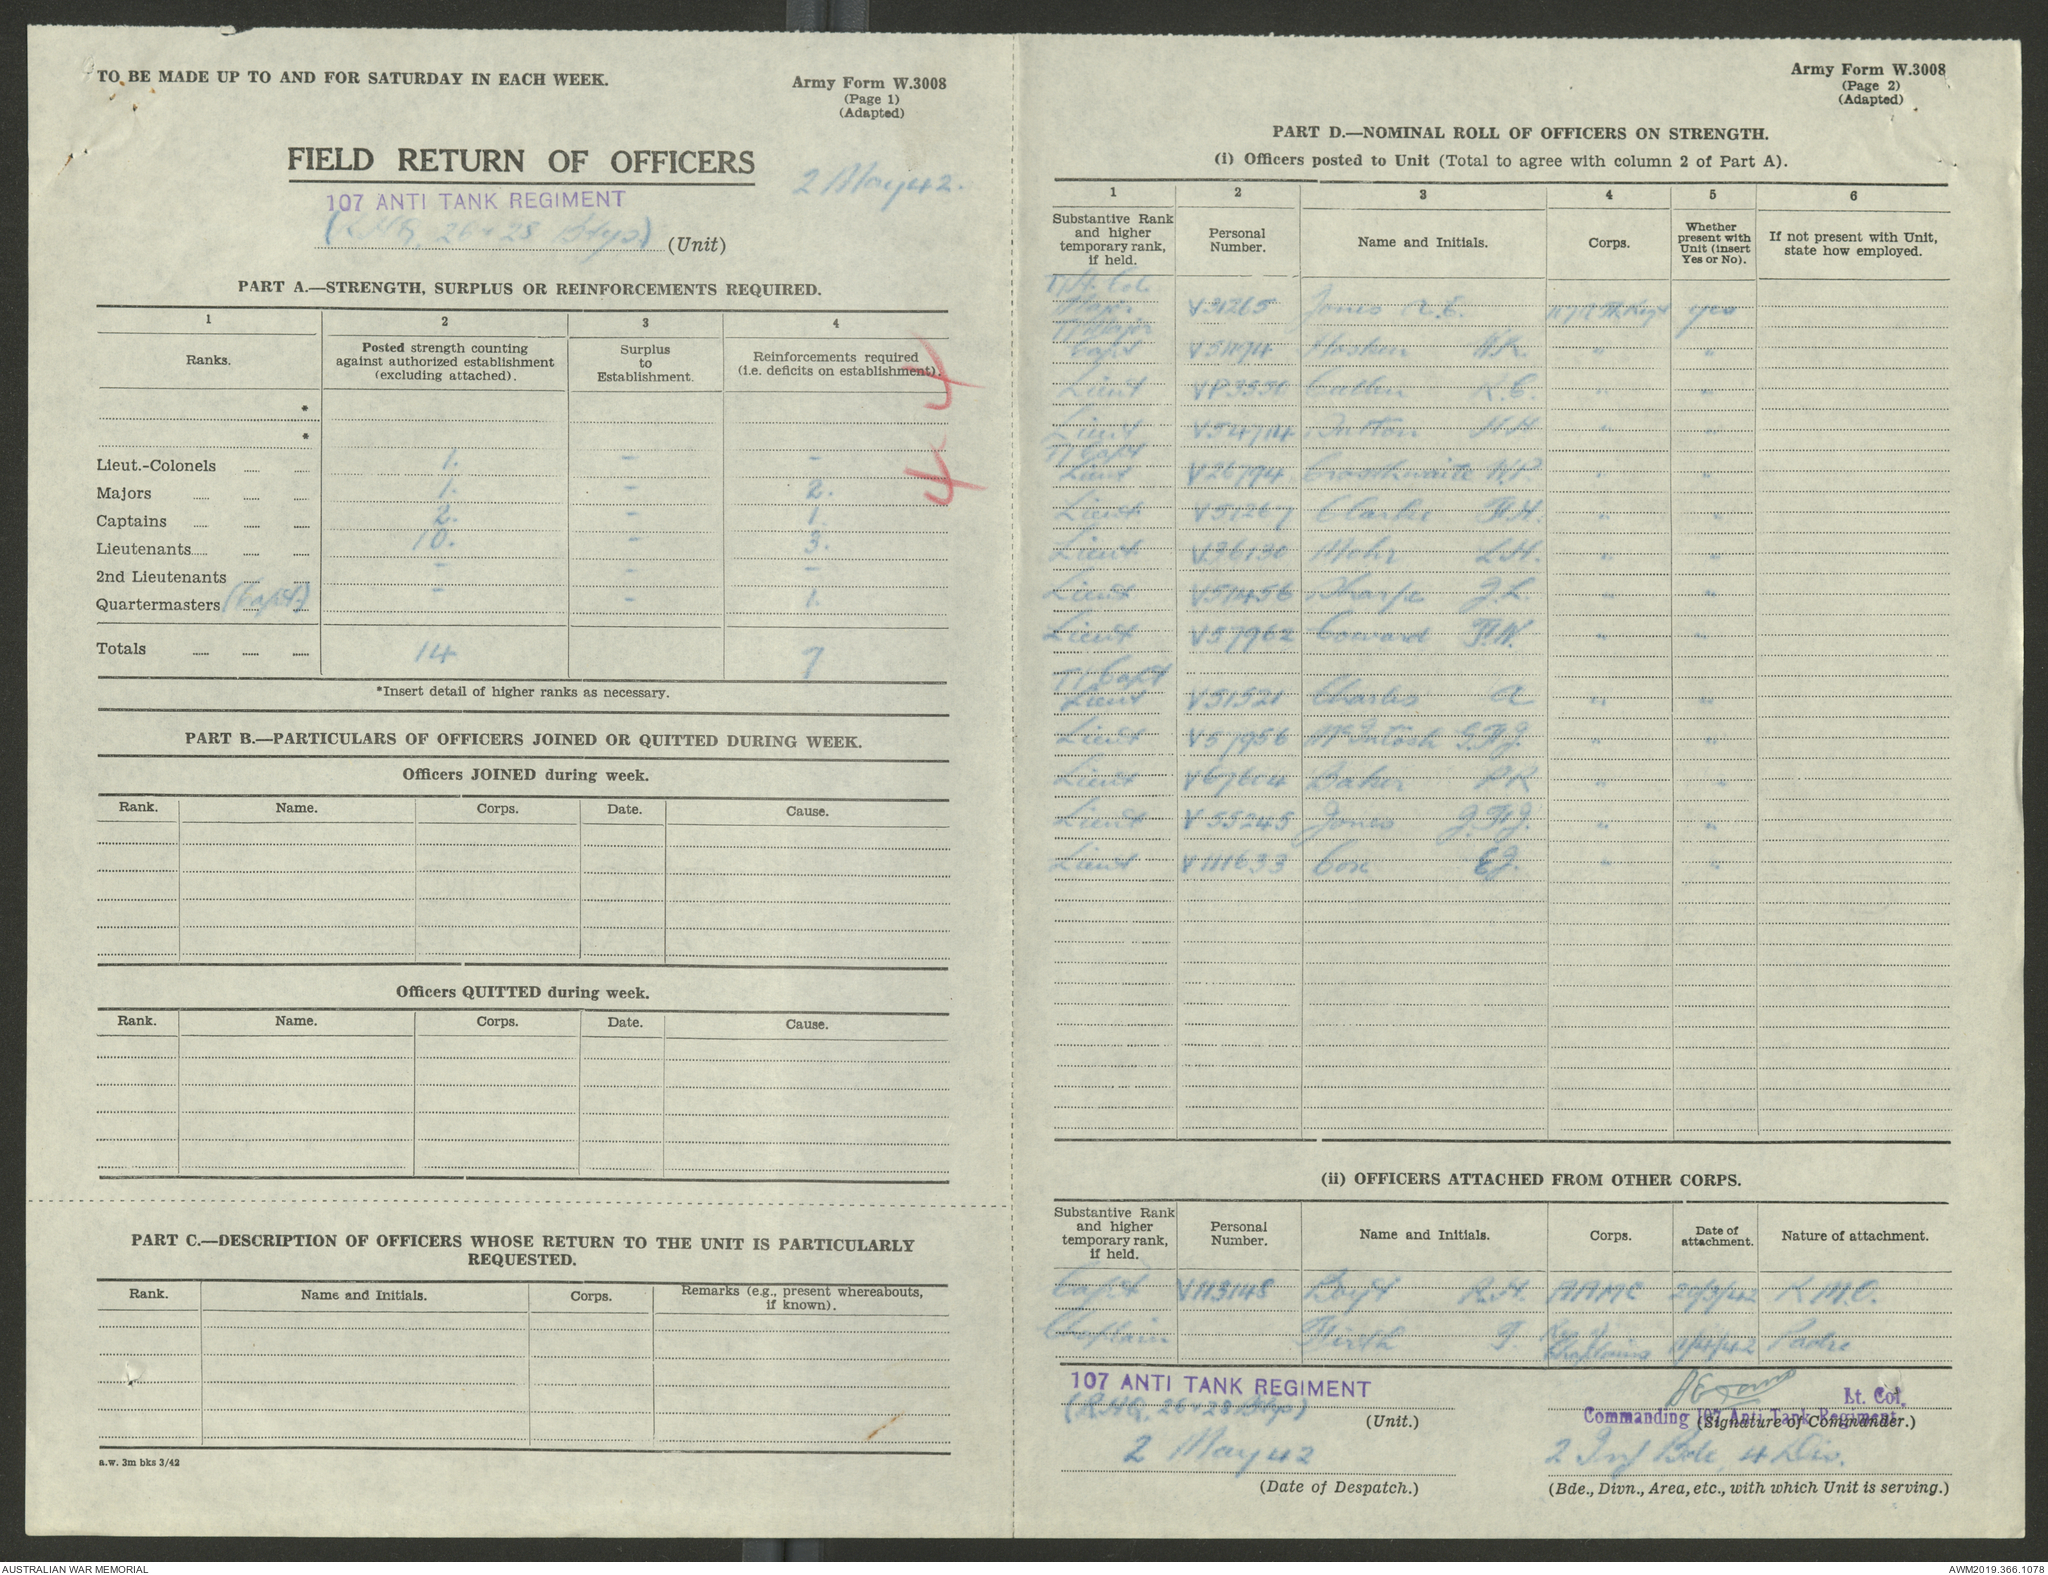 TO BE MADE UP TO AND FOR SATURDAY IN EACH WEEK.
Army Form W.3008
(Page 1)
(Adapted)
FIELD RETURN OF OFFICERS
2 May 42.
107 ANTI TANK REGIMENT
(RHQ, 26 & 28 Btys) (Unit)
PART A.—STRENGTH, SURPLUS OR REINFORCEMENTS REQUIRED.
1 2 3 4
Ranks. Posted strength counting against authorized establishment (excluding attached). Surplus to Establishment. Reinforcements required (i.e. deficits on establishment).
4 4
*
*
Lieut.-Colonels 1. – –
Majors 1. – 2.
Captains 2. – 1.
Lieutenants 10. – 3.
2nd Lieutenants – – –
Quartermasters (Capt.) – – 1.
Totals 14 7
*Insert detail of higher ranks as necessary.
PART B.—PARTICULARS OF OFFICERS JOINED OR QUITTED DURING WEEK.
Officers JOINED during week.
Rank. Name. Corps. Date. Cause.
Officers QUITTED during week.
Rank. Name. Corps. Date. Cause.
PART C.—DESCRIPTION OF OFFICERS WHOSE RETURN TO THE UNIT IS PARTICULARLY
REQUESTED.
Rank. Name and Initials. Corps. Remarks (e.g., present whereabouts, if known).
a.w. 3m bks 3/42
Army Form W.3008
(Page 2)
(Adapted)
PART D.—NOMINAL ROLL OF OFFICERS ON STRENGTH.
(i) Officers posted to Unit (Total to agree with column 2 of Part A).
1 2 3 4 5 6
Substantive Rank and higher temporary rank, if held. Personal Number. Name and Initials. Corps. Whether present with Unit (insert Yes or No). If not present with Unit, state how employed.
T/Lt. Col.
Major V31265 Jones A.E. yes
T/Major
Capt Hosken " "
Lieut VP3330 Callen R.C. " "
Lieut H.H. " "
T/Capt
Lieut V26794 Crosthwaite N.P. " "
Lieut V51267 " "
Lieut V36130 Mohr L.H. " "
Lieut V51456 Sharpe J.L. " "
Lieut V57962 Coward F.N. " "
T/Capt
Lieut V51521 Charles A " "
Lieut V57956 McIntosh G.F.J. " "
Lieut V67604 Baker P R " "
Lieut V55245 Jones J.F.J. " "
Lieut V111633 Cox E.J. " "
(ii) OFFICERS ATTACHED FROM OTHER CORPS.
Substantive Rank and higher temporary rank, if held. Personal Number. Name and Initials. Corps. Date of attachment. Nature of attachment.
Capt V113148 R.H. AAMC 20/3/42 R.M.O.
Chaplain Firth T. Chaplains 11/4/42 Padre
107 ANTI TANK REGIMENT
(RHQ, 26 & 28 Btys) (Unit.)
AE Jones Lt. Col.
Commanding 107 Anti Tank Regiment
(Signature of Commander.)
2 May 42
(Date of Despatch.)
2 Inf Bde, 4 Div.
(Bde., Divn., Area, etc., with which Unit is serving.)
AUSTRALIAN WAR MEMORIAL
AWM2019.366.1078